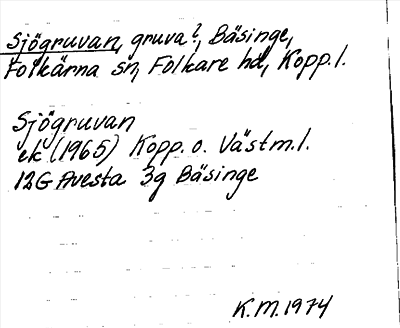 Sjögruvan, gruva?, Bäsinge,
Folkärna sn, Folkare hd, Kopp.l.
Sjögruvan
ek (1965) Kopp. o. Västm.l.
12G Avesta 3g Bäsinge
K.M.1974